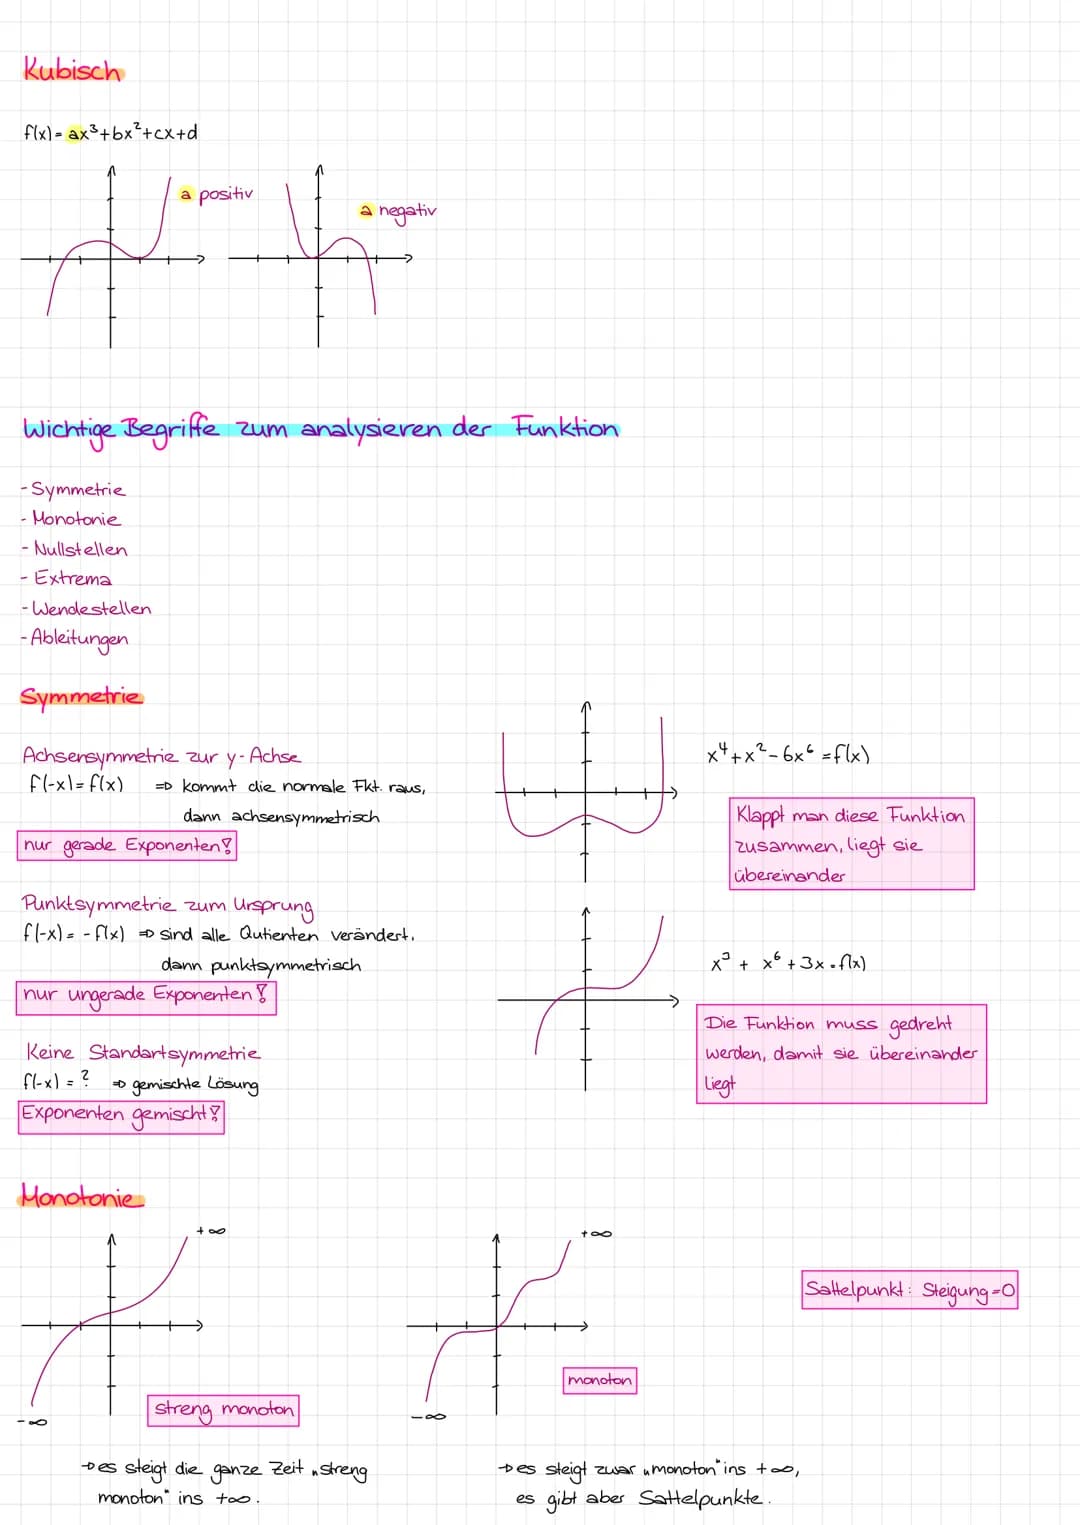 Kubisch
f(x) = ax³+bx²+cx+d
a positiv
a negativ
Wichtige Begriffe zum analysieren der Funktion
- Symmetrie
- Monotonie
- Nullstellen
- Extrema
- Wendestellen
- Ableitungen
Symmetrie
Achsensymmetrie zur y-Achse
f(-x) = f(x) ⇒ kommt die normale Fkt. raus,
dann achsensymmetrisch
nur gerade Exponenten!
x⁴+x²-6x⁶ = f(x)
Klappt man diese Funktion
zusammen, liegt sie
übereinander
Punktsymmetrie zum Ursprung
f(-x) = - f(x) ⇒ sind alle Qutienten verändert,
dann punktsymmetrisch
nur ungerade Exponenten!
x³ + x⁶ + 3x = f(x)
Die Funktion muss gedreht
werden, damit sie übereinander
liegt
Keine Standartsymmetrie
f(-x) = ? ⇒ gemischte Lösung
Exponenten gemischt!
Monotonie
+∞
-∞
streng monoton
→ es steigt die ganze Zeit „streng
monoton" ins +∞.
+∞
-∞
monoton
→ es steigt zwar „monoton" ins +∞,
es gibt aber Sattelpunkte.
Sattelpunkt: Steigung=0